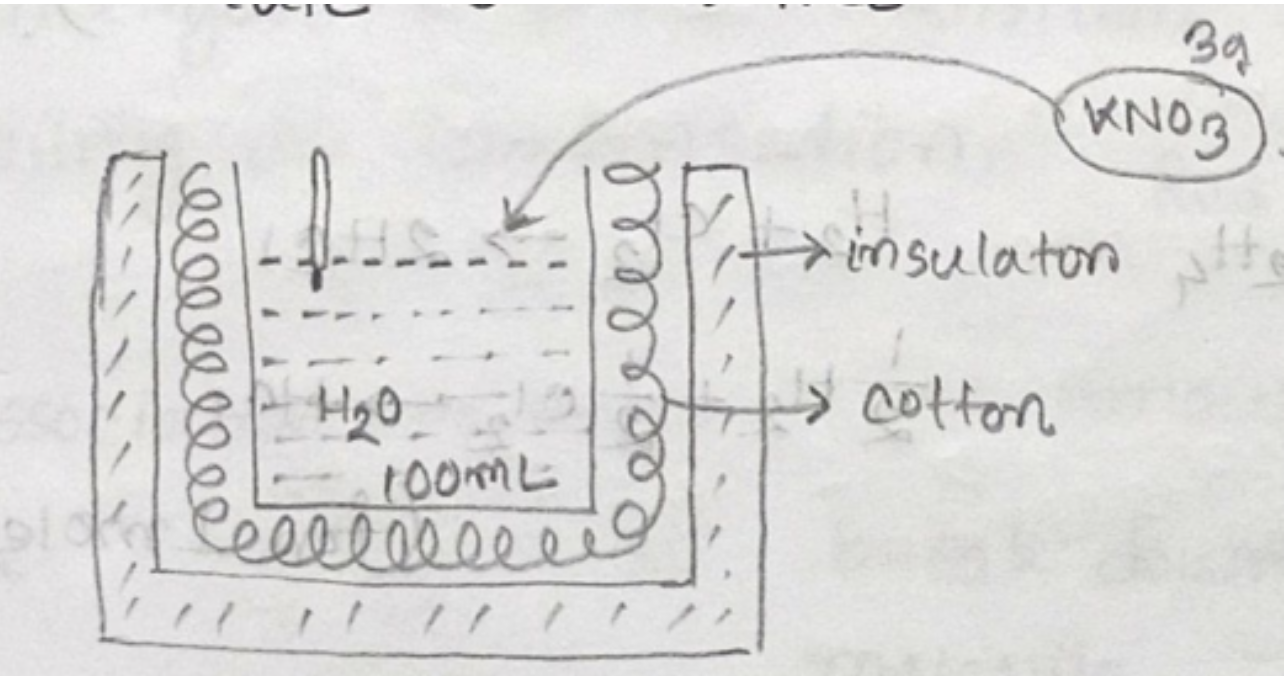 3g
KNO3
insulator
cotton
H2O
100mL